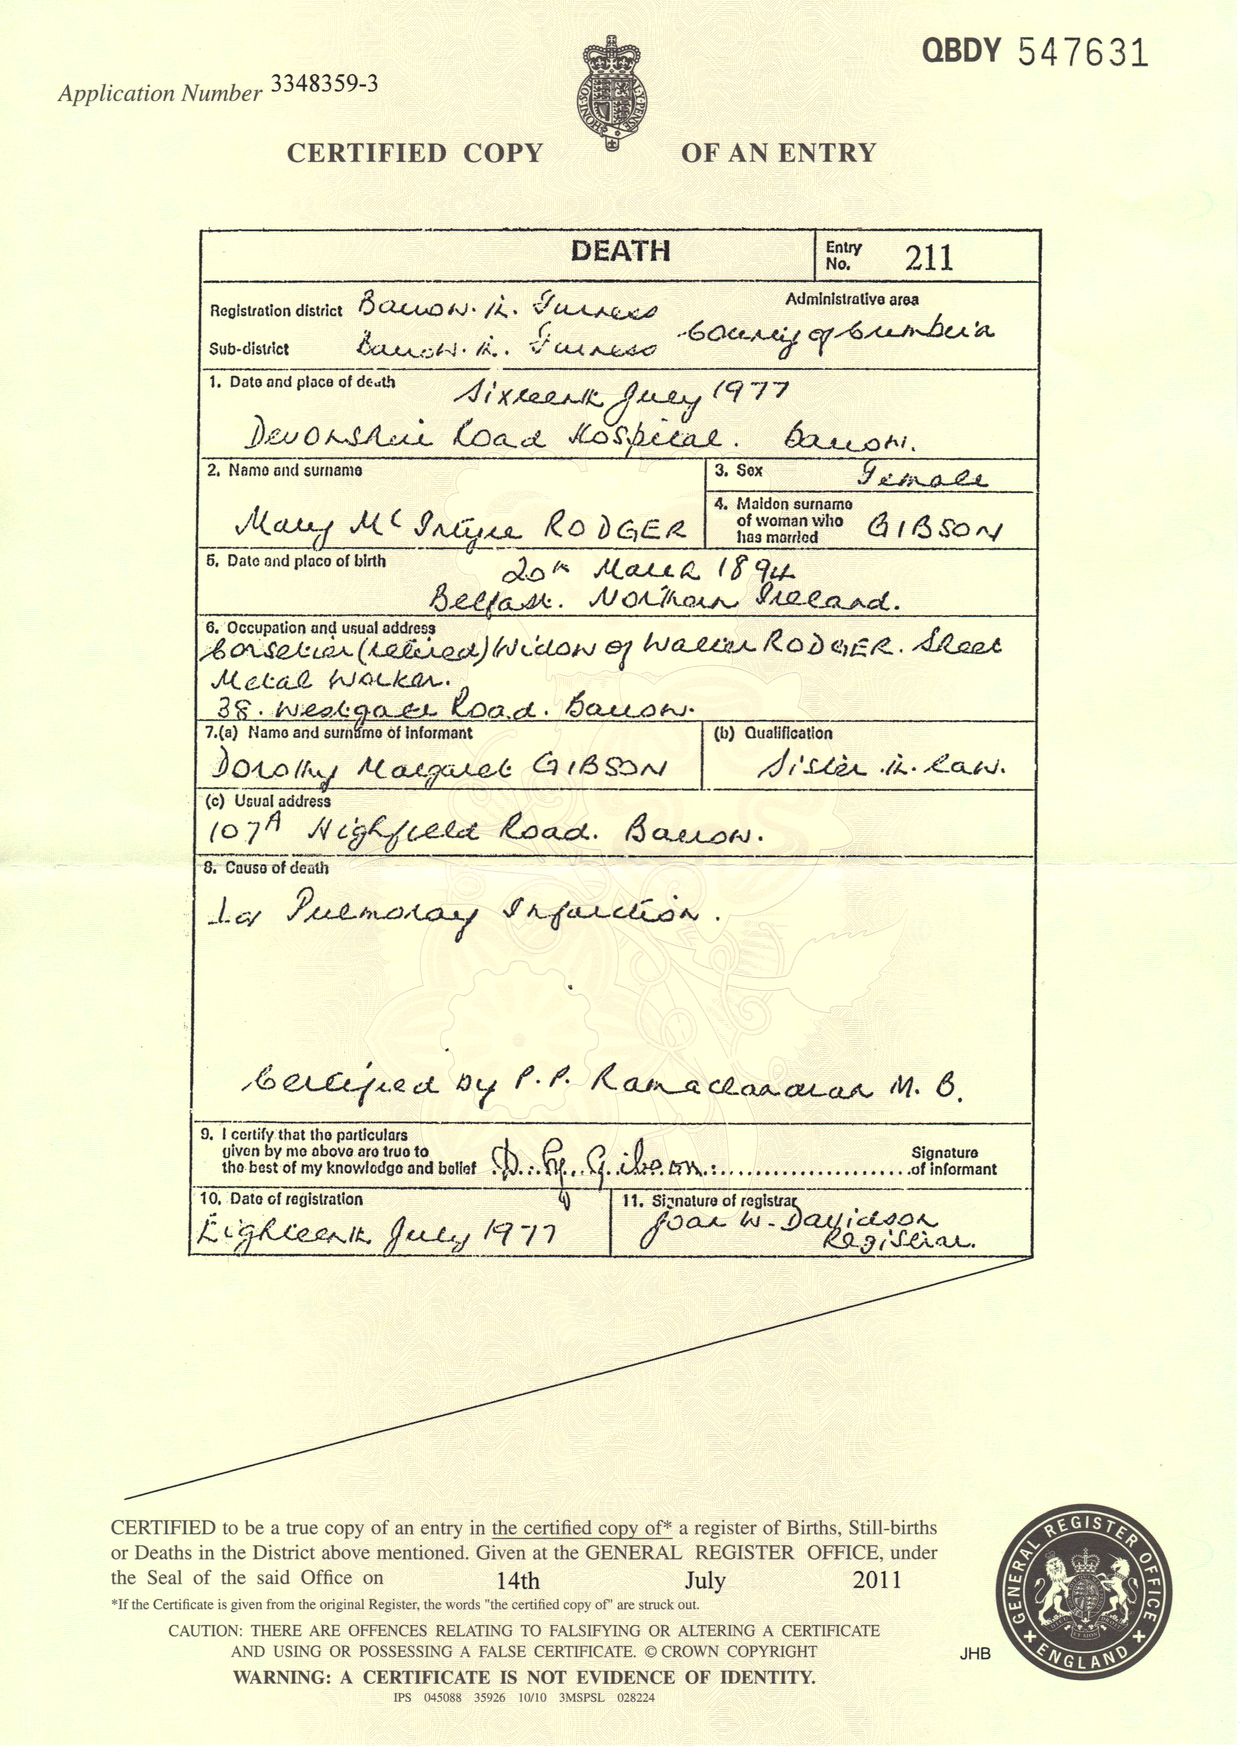 QBDY 547631
Application Number 3348359-3
CERTIFIED COPY OF AN ENTRY
DEATH
Entry No. 211
Registration district Barrow. in. Furness
Administrative area
County of Cumbria
Sub-district Barrow. in. Furness
1. Date and place of death Sixteenth July 1977
Devonshire Road Hospital. Barrow.
2. Name and surname
Mary McIntyre RODGER
3. Sex Female
4. Maiden surname
of woman who
has married
GIBSON
5. Date and place of birth 20th March 1894
Belfast. Northern Ireland.
6. Occupation and usual address
Corsetier (retired) Widow of Walter RODGER. Sheet
Metal Worker.
38. Westgate Road. Barrow.
7.(a) Name and surname of informant
Dorothy Margaret GIBSON
(b) Qualification
Sister. in. law.
(c) Usual address
107A Highfield Road. Barrow.
8. Cause of death
1a Pulmonay Infarction.
Certified by P.P. Ramachandran M. B.
9. I certify that the particulars
given by me above are true to
the best of my knowledge and belief D. M. Gibson
Signature
of informant
10. Date of registration
Eighteenth July 1977
11. Signature of registrar
Joan W. Davidson
Registrar.
CERTIFIED to be a true copy of an entry in the certified copy of* a register of Births, Still-births
or Deaths in the District above mentioned. Given at the GENERAL REGISTER OFFICE, under
the Seal of the said Office on 14th July 2011
*If the Certificate is given from the original Register, the words "the certified copy of" are struck out.
CAUTION: THERE ARE OFFENCES RELATING TO FALSIFYING OR ALTERING A CERTIFICATE
AND USING OR POSSESSING A FALSE CERTIFICATE. © CROWN COPYRIGHT
WARNING: A CERTIFICATE IS NOT EVIDENCE OF IDENTITY.
IPS 045088 35926 10/10 3MSPSL 028224
JHB
GENERAL REGISTER OFFICE
ENGLAND